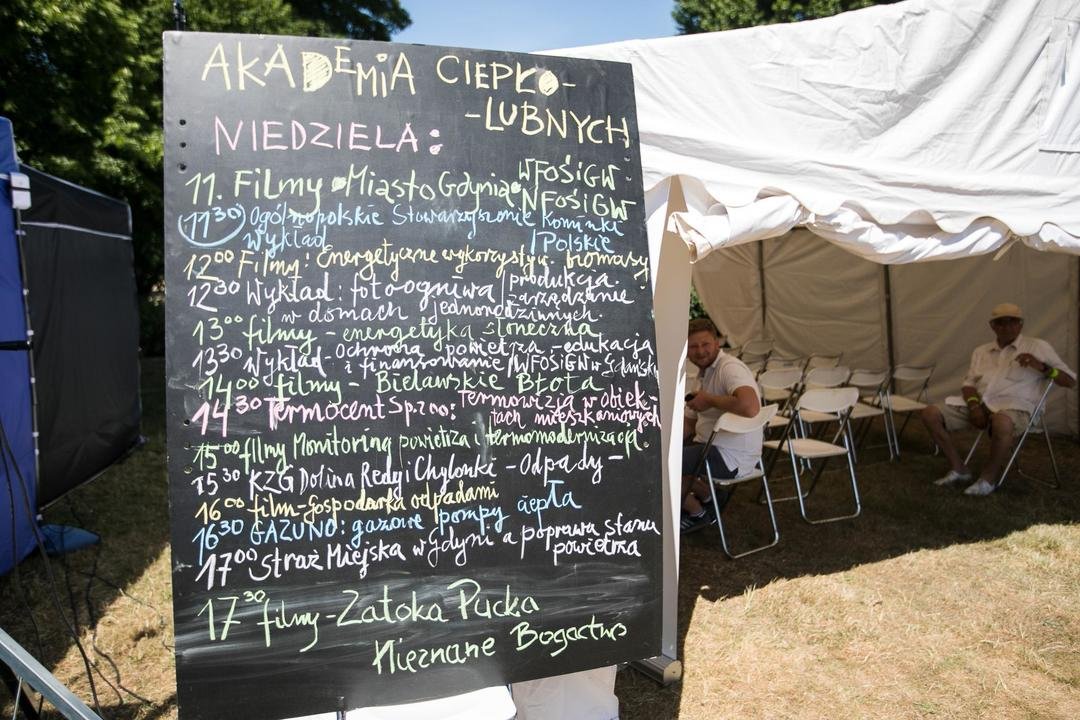 AKADEMiA CIEPŁO-
-LUBNYCH
NIEDZIELA:
11. Filmy Miasto Gdynia WFOŚiGW
NFOŚiGW
11³⁰ Ogólnopolskie Stowarzyszenie Kominki
Wykład /Polskie
12⁰⁰ Filmy: Energetyczne wykorzyst. biomasy
12³⁰ Wykład: fotoogniwa/produkcja.
zarządzanie
w domach jednorodzinnych.
13⁰⁰ filmy - energetyka słoneczna
13³⁰ Wykład - Ochrona powietrza - edukacja
i finansowanie /WFOŚiGW w Gdańsku
14⁰⁰ filmy - Bielawskie Błota
14³⁰ Termocent Sp. z oo: Termowizja w obiek-
tach mieszkaniowych
15⁰⁰ filmy Monitoring powietrza i termomodernizacja.
15³⁰ KZG Dolina Redy i Chylonki - Odpady -
16⁰⁰ film - Gospodarka odpadami
16³⁰ GAZUNO: gazowe pompy ciepła
17⁰⁰ Straż Miejska w Gdyni a poprawa stanu
powietrza
17³⁰ filmy - Zatoka Pucka
Nieznane Bogactwo